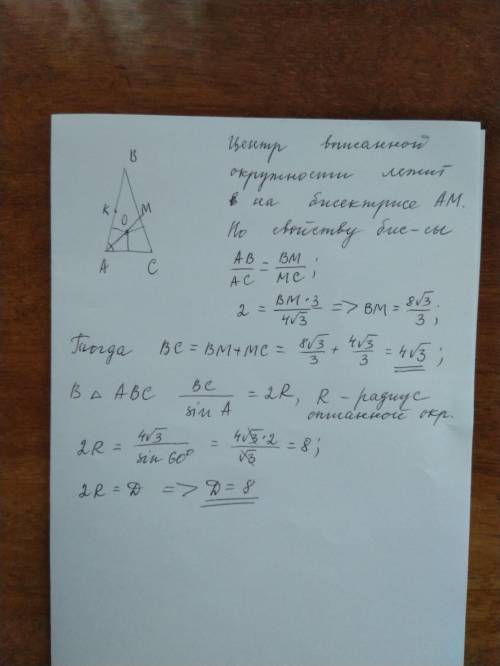 B
K
O
M
A
C
Центр вписанной
окружности лежит
на бисектрисе AM.
По свойству бис-сы
AB/AC = BM/MC;
2 = BM·3/4√3 => BM = 8√3/3;
Тогда BC = BM+MC = 8√3/3 + 4√3/3 = 4√3;
В △ ABC BC/sin A = 2R, R - радиус
описанной окр.
2R = 4√3/sin 60° = 4√3·2/√3 = 8;
2R = D => D = 8